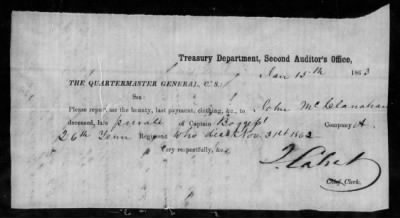 Treasury Department, Second Auditor's Office,
Jan 15th 1863
THE QUARTERMASTER GENERAL, C. S.:
SIR:
Please report as the bounty, last payment, clothing, &c., to John McClanahan
deceased, late private of Captain Company A.
26th Tenn Regiment who died Nov. 31st 1862
Very respectfully, &c.,
Chief Clerk.